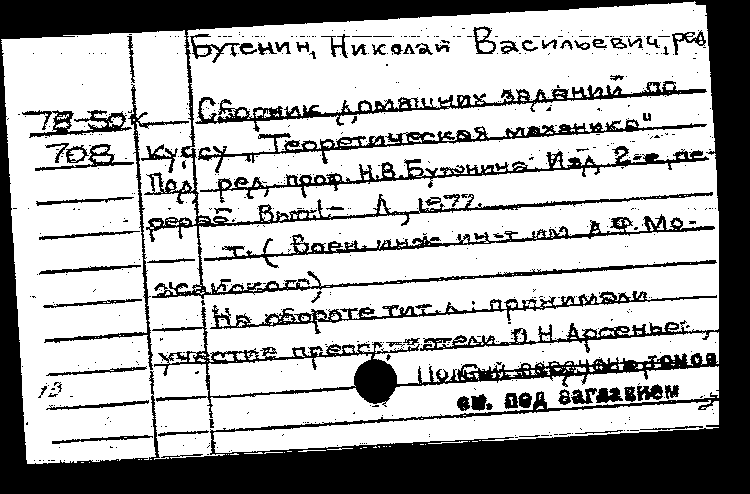 Бутенин, Николай Васильевич, ред.
78-50к Сборник домашних заданий по
708 курсу "Теоретическая механика"
Под ред. проф. Н.В.Бутенина. Изд. 2-е, пе-
рераб. Вып.1- Л., 1977.
т. (Воен. инж. ин-т им А.Ф.Мо-
жайского)
На обороте тит. л.: принимали
участие преподаватели В.Н.Арсеньев,
13
томов
см. под заглавием